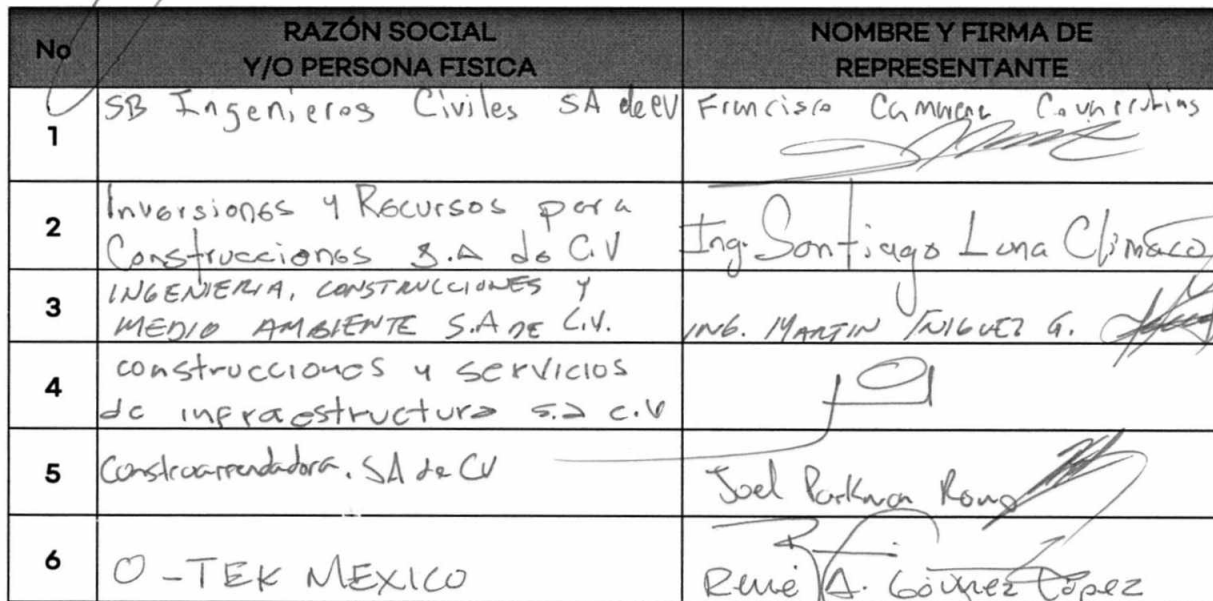 No
RAZÓN SOCIAL
Y/O PERSONA FISICA
NOMBRE Y FIRMA DE
REPRESENTANTE
1
SB Ingenieros Civiles SA de CV
Francisco Camarena Covarrubias
2
Inversiones y Recursos para
Construcciones S.A de C.V
Ing. Santiago Luna Climaco
3
INGENIERIA, CONSTRUCCIONES Y
MEDIO AMBIENTE S.A DE C.V.
ING. MARTIN IÑIGUEZ G.
4
construcciones y servicios
de infraestructura s.a c.v
5
Construarrendadora. SA de CV
Joel
6
O-TEK MEXICO
René A. Gómez López